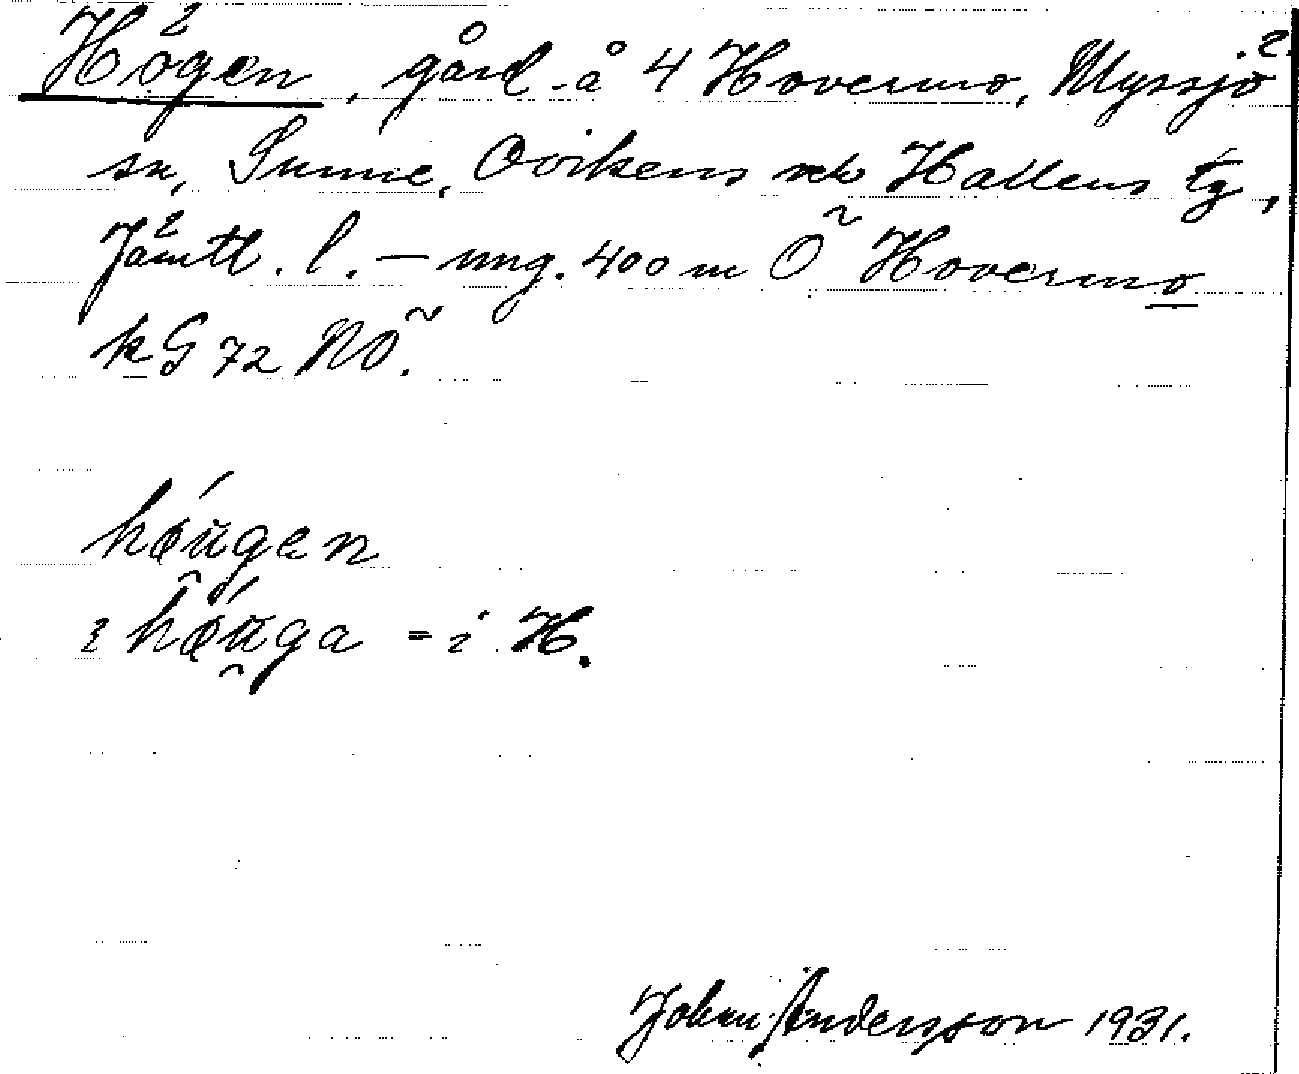 Högen, gård å 4 Hovermo, Myssjö
sn, Sunne, Ovikens och Hallens tg,
Jämtl. l. – ung. 400 m Ö Hovermo
kG 72 NÖ.
hǿu̯gen
i hǿu̯ga = i H.
Johan Andersson 1931.